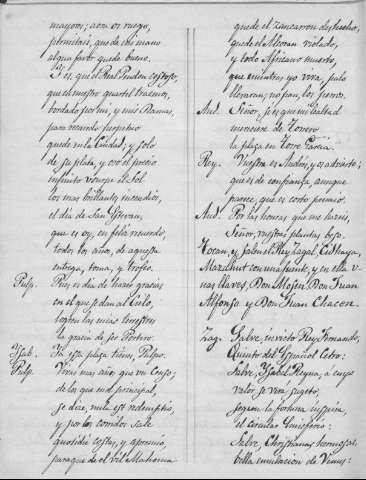 mayores; aora os ruego,
permitais, que de mi mano
algun favor quede bueno.
Y es, que el Real Pendon costoso,
que el nuestro quartel bracemos,
bordado por mi, y mis Damas,
para recuerdo perpetuo
quede en la Ciudad, y solo
de su plata, y oro el precio
infinito
los mas brillantes incendios,
el dia de San Estevan,
que es oy, en feliz recuerdo,
todos los años, de aquesta
entrega, toma, y trofeo.
Pulg. Pues es dia de hacer gracias
en el que se dan al Cielo,
logren las mias terrestres
la gracia de ser Portero.
Ysab. En esta plaza tienes, Pulgar.
Pulg. Vivas mas años que un Censo,
de los que en el principal,
se dice, nula est redemptio,
y por los corridos sale
quotidie costas, y apremio,
para que de el vil Mahoma
quede el zancarron deshecho,
quede el Alcoran violado,
y todo Africano muerto,
que mientras yo viva, palo
llevaran, no pan, los perros.
And. Señor, si es que mi lealtad
mereciere de Torero
la plaza en Torre Garcia.
Rey. Vuestra es Andres, y os advierto;
que es de confianza, aunque
parece, que es corto premio.
And. Por las honras que me haceis,
Señor, vuestras plantas beso.
Tocan, y salen el Rey Zagal, Cidhaya,
Mazamut con una fuente, y en ella u-
nas llaves, Don Mosen, Don Juan
Alfonso y Don Juan Chacon.
Zag. Salve, invicto Rey Fernando,
Quinto del Español Cetro:
Salve, Ysabel Reyna, á cuyo
valor se verá sugeto,
segun la fortuna inspira,
el circular Emisferio:
Salve, Christianas hermosas
bella emulacion de Venus: